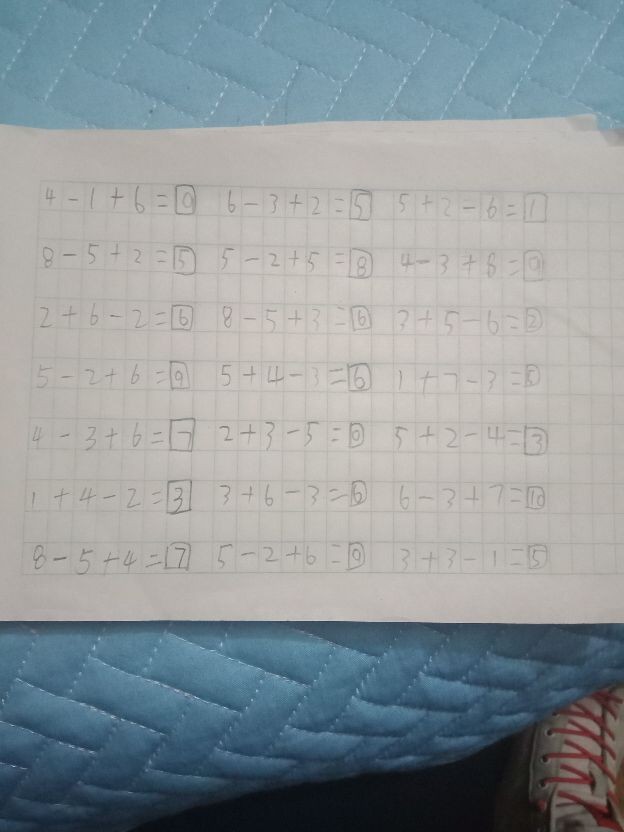 4-1+6=9 6-3+2=5 5+2-6=1
8-5+2=5 5-2+5=8 4-3+8=9
2+6-2=6 8-5+3=6 3+5-6=2
5-2+6=9 5+4-3=6 1+7-3=5
4-3+6=7 2+3-5=0 5+2-4=3
1+4-2=3 3+6-3=6 6-3+7=10
8-5+4=7 5-2+6=9 3+3-1=5